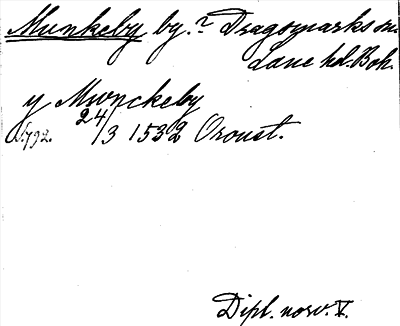 Munkeby by.? Dragsmarks sn.
Lane hd. Boh.
y Mwnckeby
s. 792. 24/3 1532 Oroust.
Dipl. norv. V.